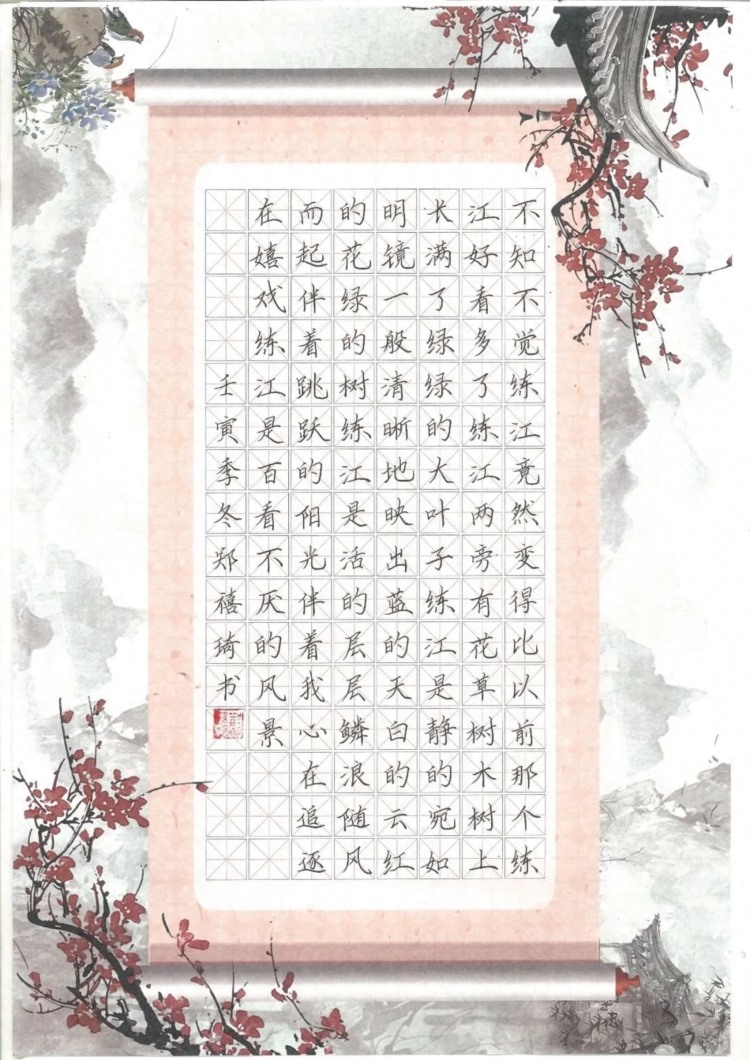 不知不觉练江竟然变得比以前那个练
江好看多了练江两旁有花草树木树上
长满了绿绿的大叶子练江是静的宛如
明镜一般清晰地映出蓝的天白的云红
的花绿的树练江是活的层层鳞浪随风
而起伴着跳跃的阳光伴着我心在追逐
在嬉戏练江是百看不厌的风景
壬寅季冬郑禧琦书